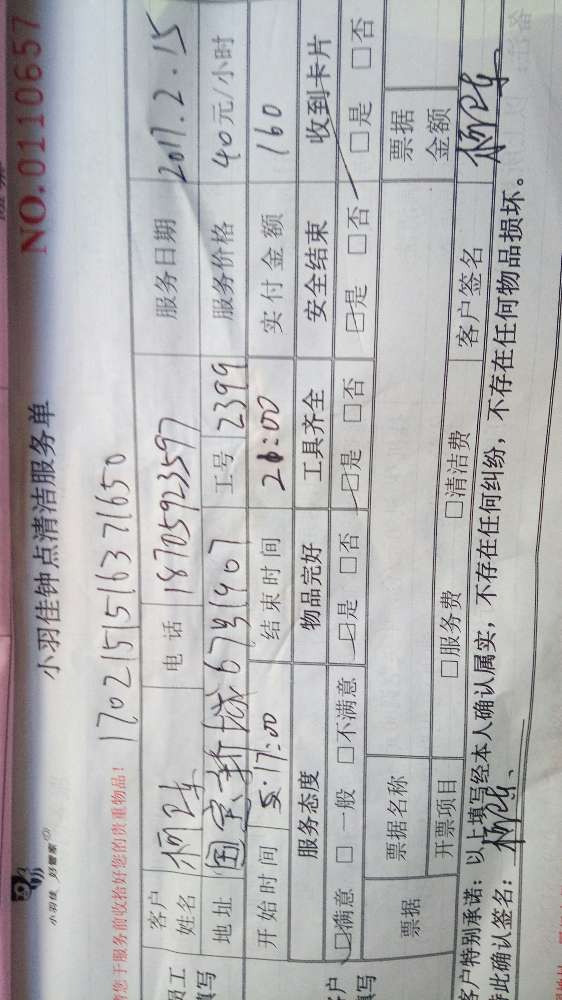 小羽佳 好管家
小羽佳钟点清洁服务单 NO.0110657
您于服务前收拾好您的贵重物品! 170215151637 1650
客户姓名 电话 18705923597 服务日期 2017.2.15
地址 国宝新城 工号 2399 服务价格 40元/小时
开始时间 17:00 结束时间 21:00 实付金额 160
服务态度 物品完好 工具齐全 安全结束 收到卡片
□满意 □一般 □不满意 □是 □否 □是 □否 □是 □否 □是 □否
票据 票据名称 票据金额
开票项目 □服务费 □清洁费 客户签名
客户特别承诺:以上填写经本人确认属实,不存在任何纠纷,不存在任何物品损坏。
此确认签名: